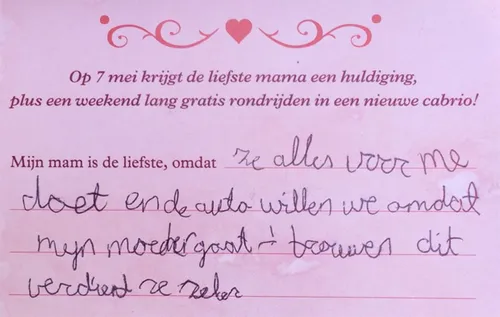 Op 7 mei krijgt de liefste mama een huldiging,
plus een weekend lang gratis rondrijden in een nieuwe cabrio!
Mijn mam is de liefste, omdat ze alles voor me
doet en de auto willen we omdat
mijn moeder gaat trouwen dit
verdiend ze zeker